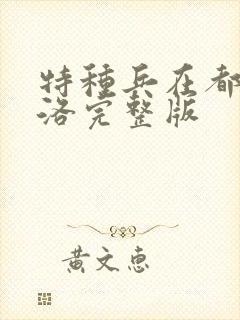 特種兵在都
洛完整版
黃文惠